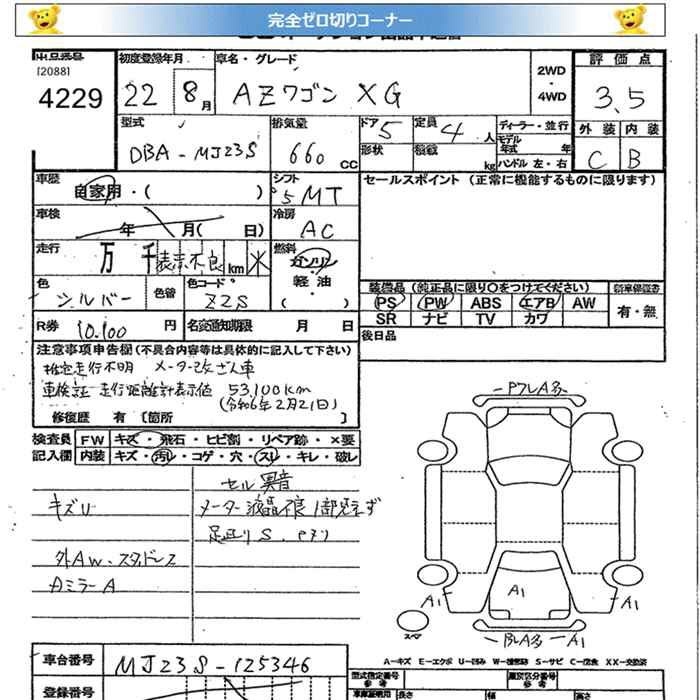 完全ゼロ切りコーナー
出品番号
[2088]
4229
初度登録年月
22 8月
車名・グレード
AZワゴン XG
2WD
・
4WD
評価点
3.5
外装 内装
C B
型式
DBA-MJ23S
排気量
660 CC
ドア 5
形状
定員 4 人
積載 kg
ディーラー・並行
モデル年式 年
ハンドル 左・右
車歴
自家用・( )
シフト
5MT
セールスポイント (正常に機能するものに限ります)
車検
年 月( 日)
冷房
AC
走行
万 千 表示不良 km
燃料
ガソリン
軽油
( )
色
シルバー
色替
色コード
Z2S
装備品 (純正品に限り○をつけてください) 新車保証書
PS PW ABS エアB AW
SR ナビ TV カワ
有・無
R券 10,100 円
名変通知期限 月 日
後日品
注意事項申告欄 (不具合内容等は具体的に記入して下さい)
推定走行不明 メーター改ざん車
車検証 走行距離計表示値 53,100km
(令和6年2月21日)
修復歴 有 [箇所 ]
検査員記入欄
FW キズ・飛石・ヒビ割・リペア跡・×要
内装 キズ・汚レ・コゲ・穴・スレ・キレ・破レ
セル異音
キズU
メーター液晶不良 1部見えず
外AW・スタッドレス
AミラーA
PフLA多
A1
A1
A1
スペア
BLA多 A1
A=キズ E=エクボ U=凹み W=補修跡 S=サビ C=腐食 XX=交換済
車台番号
MJ23S-125346
登録番号
型式指定番号
参考
類別区分番号
参考
長さ
幅
高さ